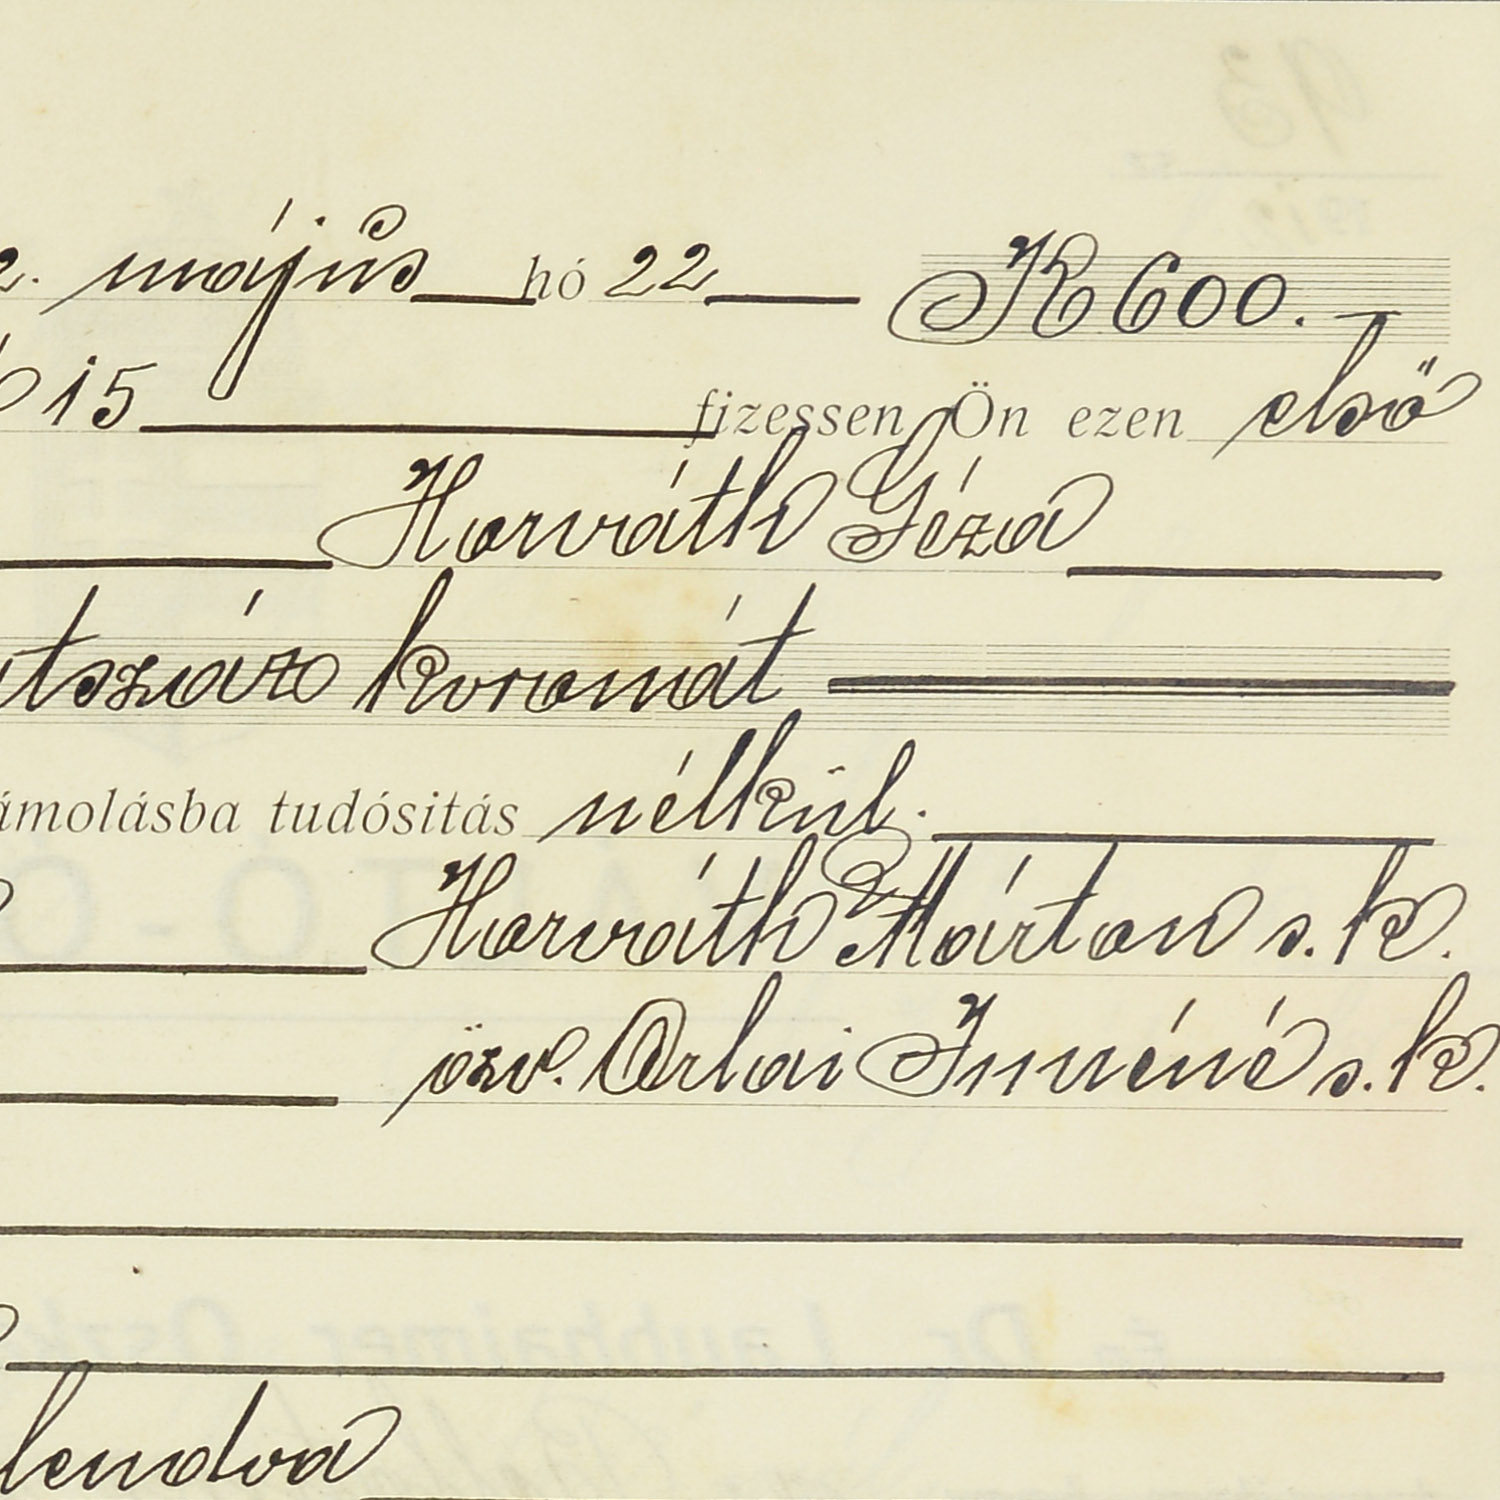 2. május hó 22 K 600.—
15 fizessen Ön ezen első
Horváth Géza
atszáz koronát
ámolásba tudósitás nélkül.
Horváth Márton s. k.
özv. Orlai Imréné s. k.
lendva